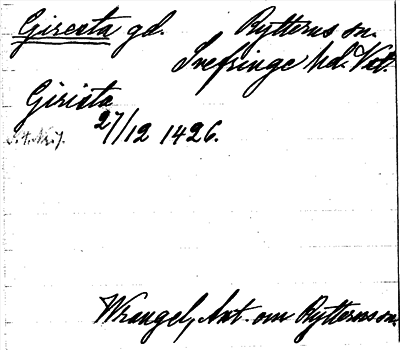 Giresta gd. Rytterns sn.
Snefringe hd. Vstm.
Girista
27/12 1426.
Wrangel, Ant. om Rytterns sn.